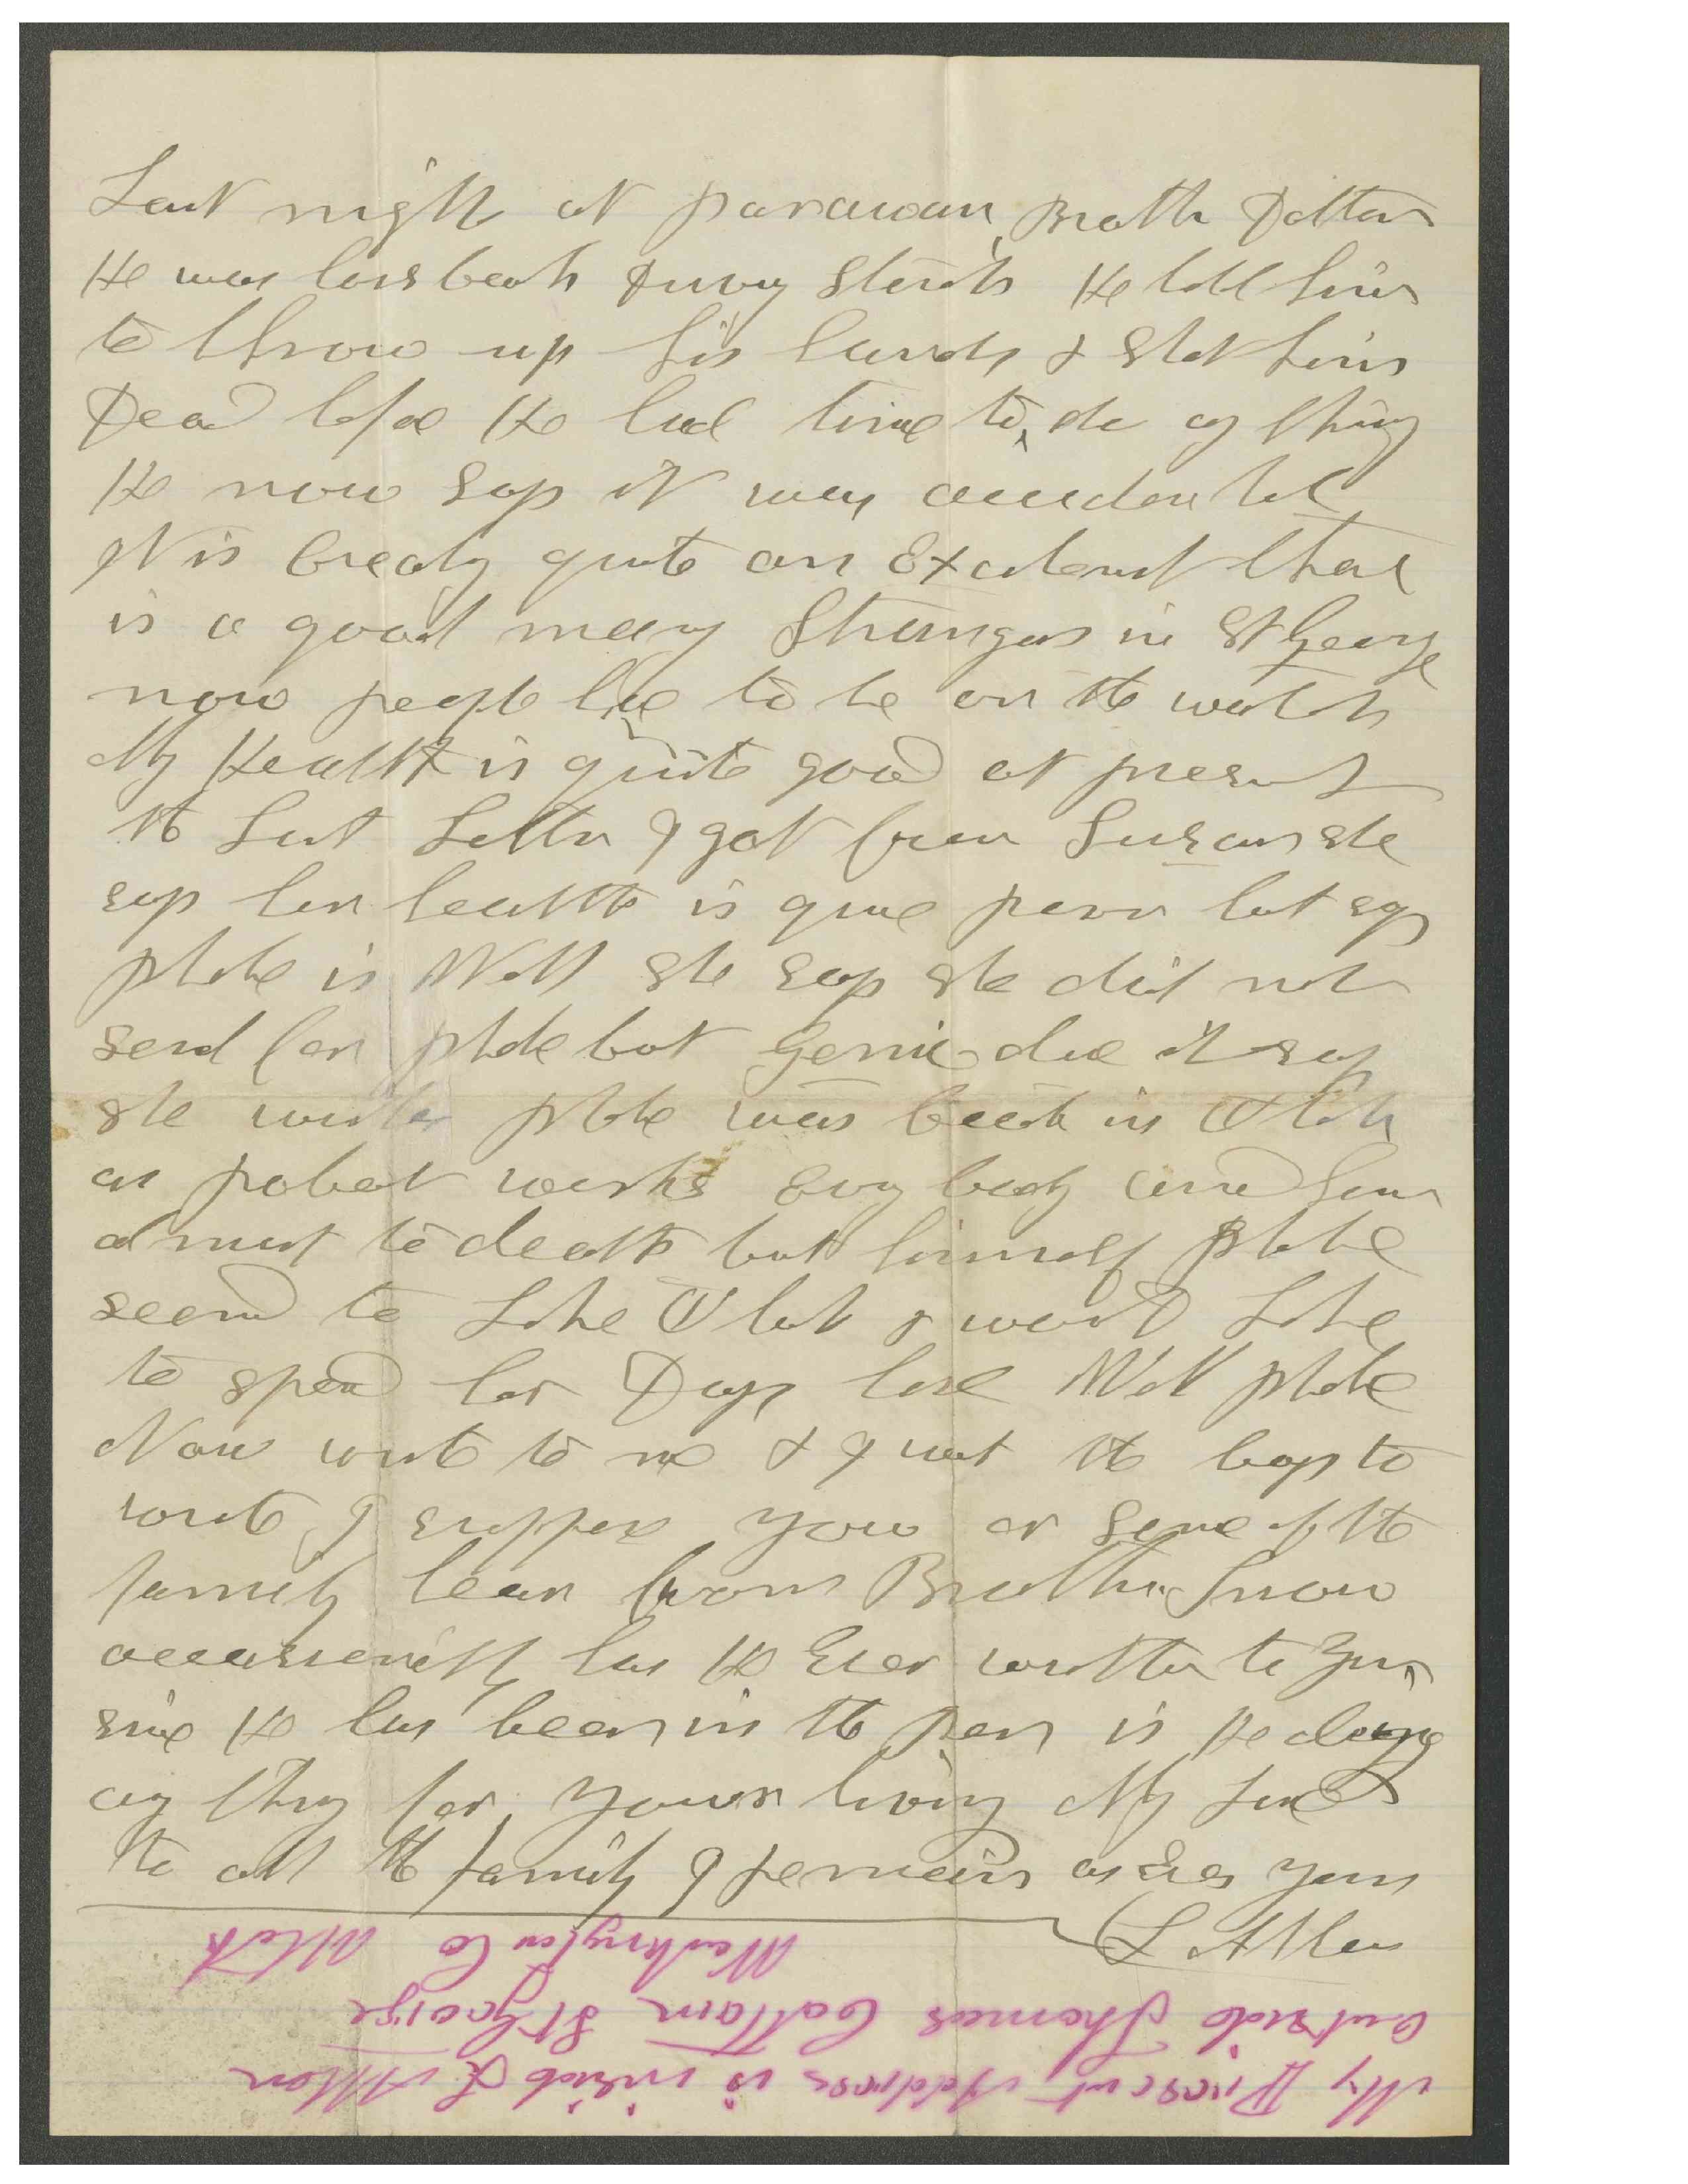 Last night at parowan Broth Dalton
He was horsback Driving Stock He told him
to throw up his hands & Shot him
Dead before He had time to do any thing
He now says it was accidental
It is creatig quite an Excitement thare
is a good many Strangers in St George
now people has to be on the watch
My Health is quite good at present
the Last Letter I got from Susan she
says her health is quite poor but says
phebe is Well she says she did not
send for phebe but Genie did it says
she wishes phebe was back in Utah
as robert works Evry body around him
almost to death but himself Phebe
seemd to Like Utah & would Like
to spend her Days here Well phebe
Now write to me & I want the boys to
write I suppose you or some of the
family hear from Brother Snow
occassionally has He Ever written to you
since He has been in the pen is He doing
any thing for your living My Love
to all the family I remain as Ever yours
L Allen
My Present Address is inside L Allen
outside Thomas Cottam St George
Washington Co Utah